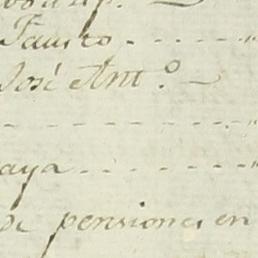 Fausto - - - - "
José Ant.º
- - - - - - "
aya - - - - - "
de pensiones en